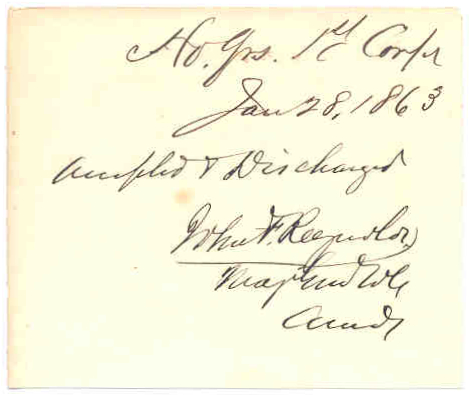 Hd. Qrs. 1st Corps
Jan 28, 1863
Accepted & Discharged
John F. Reynolds
Maj Genl Vols
Comdg